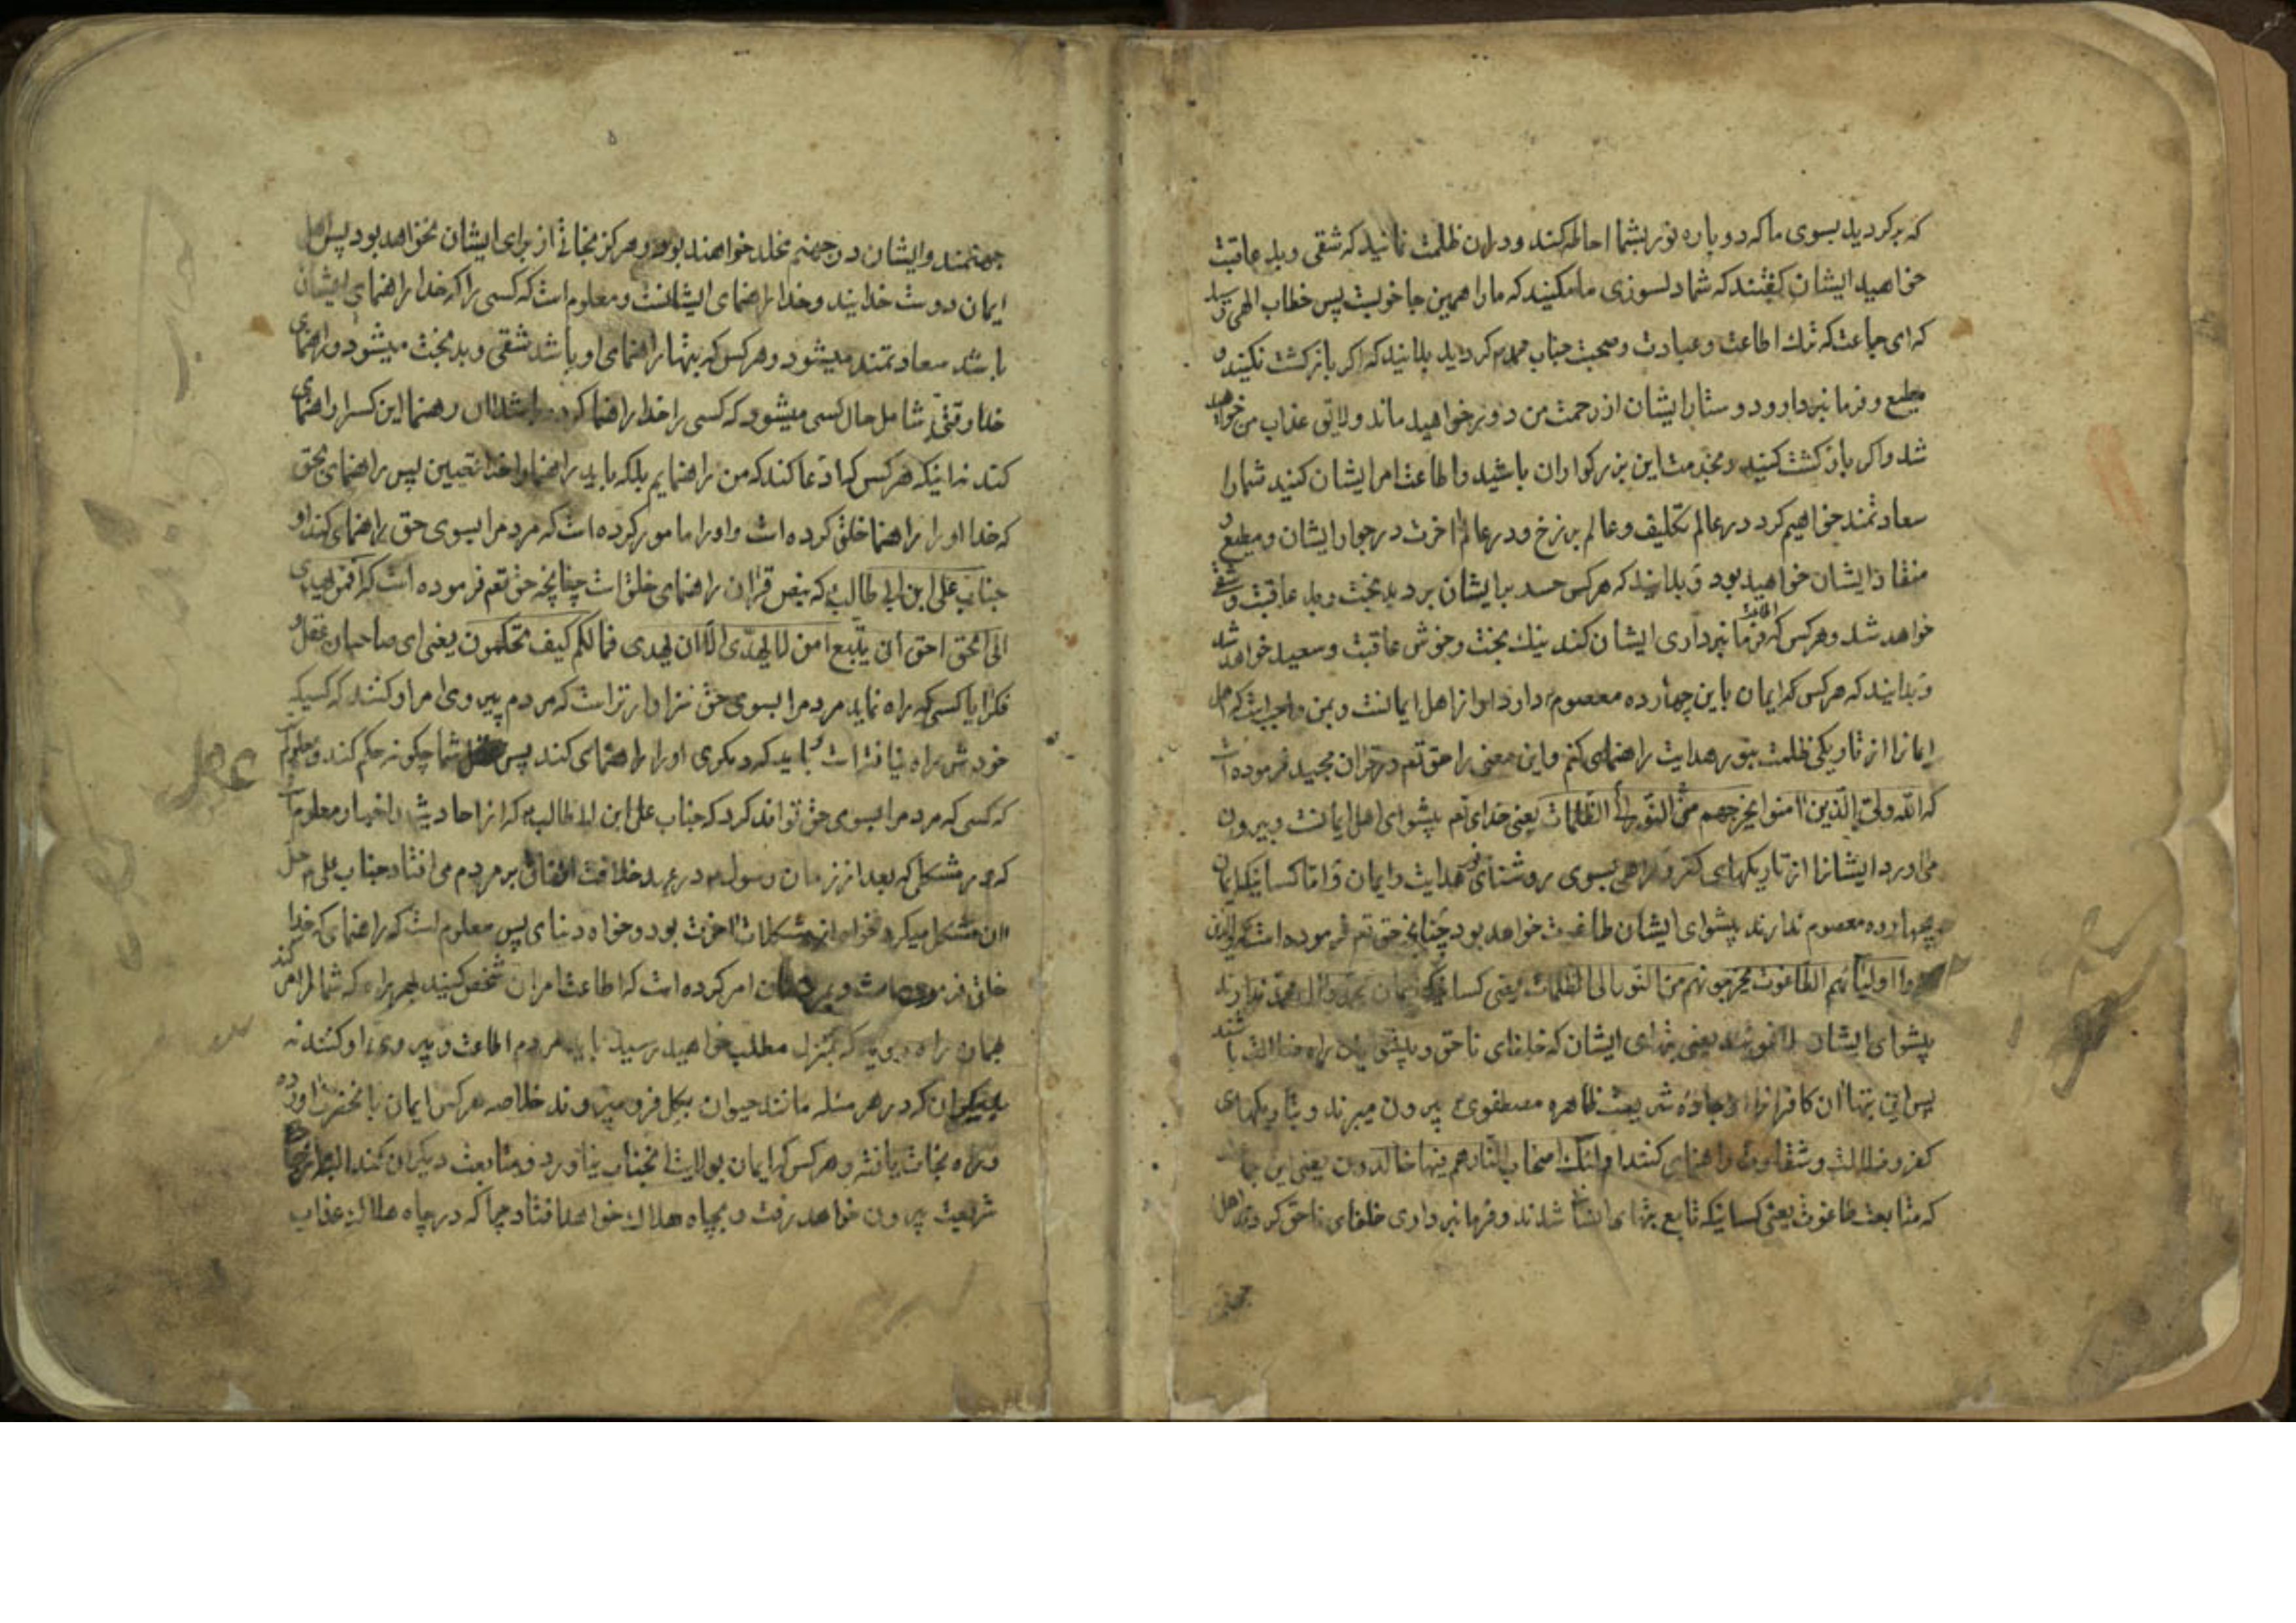 که برگردید بسوی ما که دوباره نور بشما احاطه کند ودران ظلمت نمانید که شقی وبد عاقبت
خواهید ایشان گفتند که شما دلسوزی ما مکنید که ما را همین جا خوبست پس خطاب الهی
که ای جماعت که ترك اطاعت وعبادت وصحبت جناب محمد کردید بدانید که اکر بازکشت نکنید و
مطیع وفرمانبردار ودوستار ایشان از رحمت من دور خواهید ماند ولایق عذاب من خواهید
شد واکر بازکشت کنید وبخدمت این بزرکواران باشید واطاعت امر ایشان کنید شما را
سعادتمند خواهیم کرد در عالم تکلیف وعالم برزخ ودر عالم اخرت در جوار ایشان ومطیع و
منقاد ایشان خواهید بود وبدانید که هرکس حسد بر ایشان برد بدبخت وبد عاقبت وشقی
خواهد شد وهرکس که اطاعت فرمانبرداری ایشان کند نیك بخت وخوش عاقبت وسعید خواهد شد
وبدانید که هرکس که ایمان باین چهارده معصوم دارد او از اهل ایمانست وبمن واجبست که اهل
ایمانرا از تاریکی ظلمت بنور هدایت راهنمای کنم واین معنی را حق تعم در قران مجید فرموده است
که الله ولی الذین امنوا یخرجهم من النور الی الظلمات یعنی خدای تعم پیشوای اهل ایمانست وبیرون
می اورد ایشانرا از تاریکهای کفر وکمراهی بسوی روشنای هدایت وایمان واما کسانیکه ایمان
بچهارده معصوم ندارند پیشوای ایشان طاغوت خواهد بود چنانچه حق تعم فرموده است که والذین
کفروا اولیائهم الطاغوت یخرجونهم من النور الی الظلمات یعنی کسانیکه ایمان بمحمد وال محمد ندارند
پیشوای ایشان طاغوتند یعنی بتهای ایشان که خلفای ناحق وپیشوایان راه ضلالت باشند
پس این بتها ان کافرانرا از جاده شریعت طاهره مصطفوی بیرون میبرند وبتاریکهای
کفر وضلالت وشقاوت راهنمای کنند اولئك اصحاب النار هم فیها خالدون یعنی این جماعت
که متابعت طاغوت یعنی کسانیکه تابع بتهای ایشان شدند وفرمانبرداری خلفای ناحق کردند اهل
جهنمند وایشان در جهنم مخلد خواهند بود وهرکز نجاتی از برای ایشان نخواهد بود پس اهل
ایمان دوست خدایند وخدا راهنمای ایشانست ومعلوم است که کسی را که خدا راهنمای ایشان
باشد سعادتمند میشود وهرکس که بتها راهنمای او باشد شقی وبدبخت میشود وراهنمای
خدا وقتی شامل حال کسی میشود که کسی را خدا راهنما کرده باشد ان رهنما این کسرا راهنمای
کند نه اینکه هرکس که ادعا کند که من راهنمایم بلکه باید راهنما را خدا تعیین پس راهنمای بحق
که خدا اورا راهنما خلق کرده است واورا مامور کرده است که مردمرا بسوی حق راهنمای کند او
جناب علی ابن ابی طالب که بنص قران راهنمای خلق است چنانچه حق تعم فرموده است که افمن یهدی
الی الحق احق ان یتبع امن لا یهدی الا ان یهدی فما لکم کیف تحکمون یعنی ای صاحبان عقل و
فکر ایا کسی که راه نماید مردمرا بسوی حق سزاوارتر است که مردم پیروی امر او کنند که کسیکه
خودش راه نیافته است وباید که دیکری اورا راهنمای کند پس شما چکونه حکم کنند ومعلوم
که کسی که مردمرا بسوی حق تواند کرد که جناب علی ابن ابی طالب که از احادیث واخبار معلوم
که هر مشکلی که بعد از زمان رسول در عهد خلافت اتفاق بر مردم می افتاد جناب علی حل
ان مشکل میکرد خواه از مشکلات اخرت بود وخواه دنیای پس معلوم است که راهنمای که خدا
خلق فرموده است امر کرده است که اطاعت امر ان شخص کنید بهر راه که شما را راهنمای کند
همان راه روید که بمنزل مطلب خواهید رسید باید مردم اطاعت وپیروی او کنند نه
دیکران که در هر مسئله مانند حیوان بکل فرو میروند خلاصه هرکس ایمان بانحضرت اورده
وراه نجات یافته وهرکس که ایمان بولایت انجناب نیاورد ومتابعت دیکران کند البته از
شریعت بیرون خواهد رفت وبچاه هلاك خواهد افتاد چرا که در چاه هلاکت عذاب